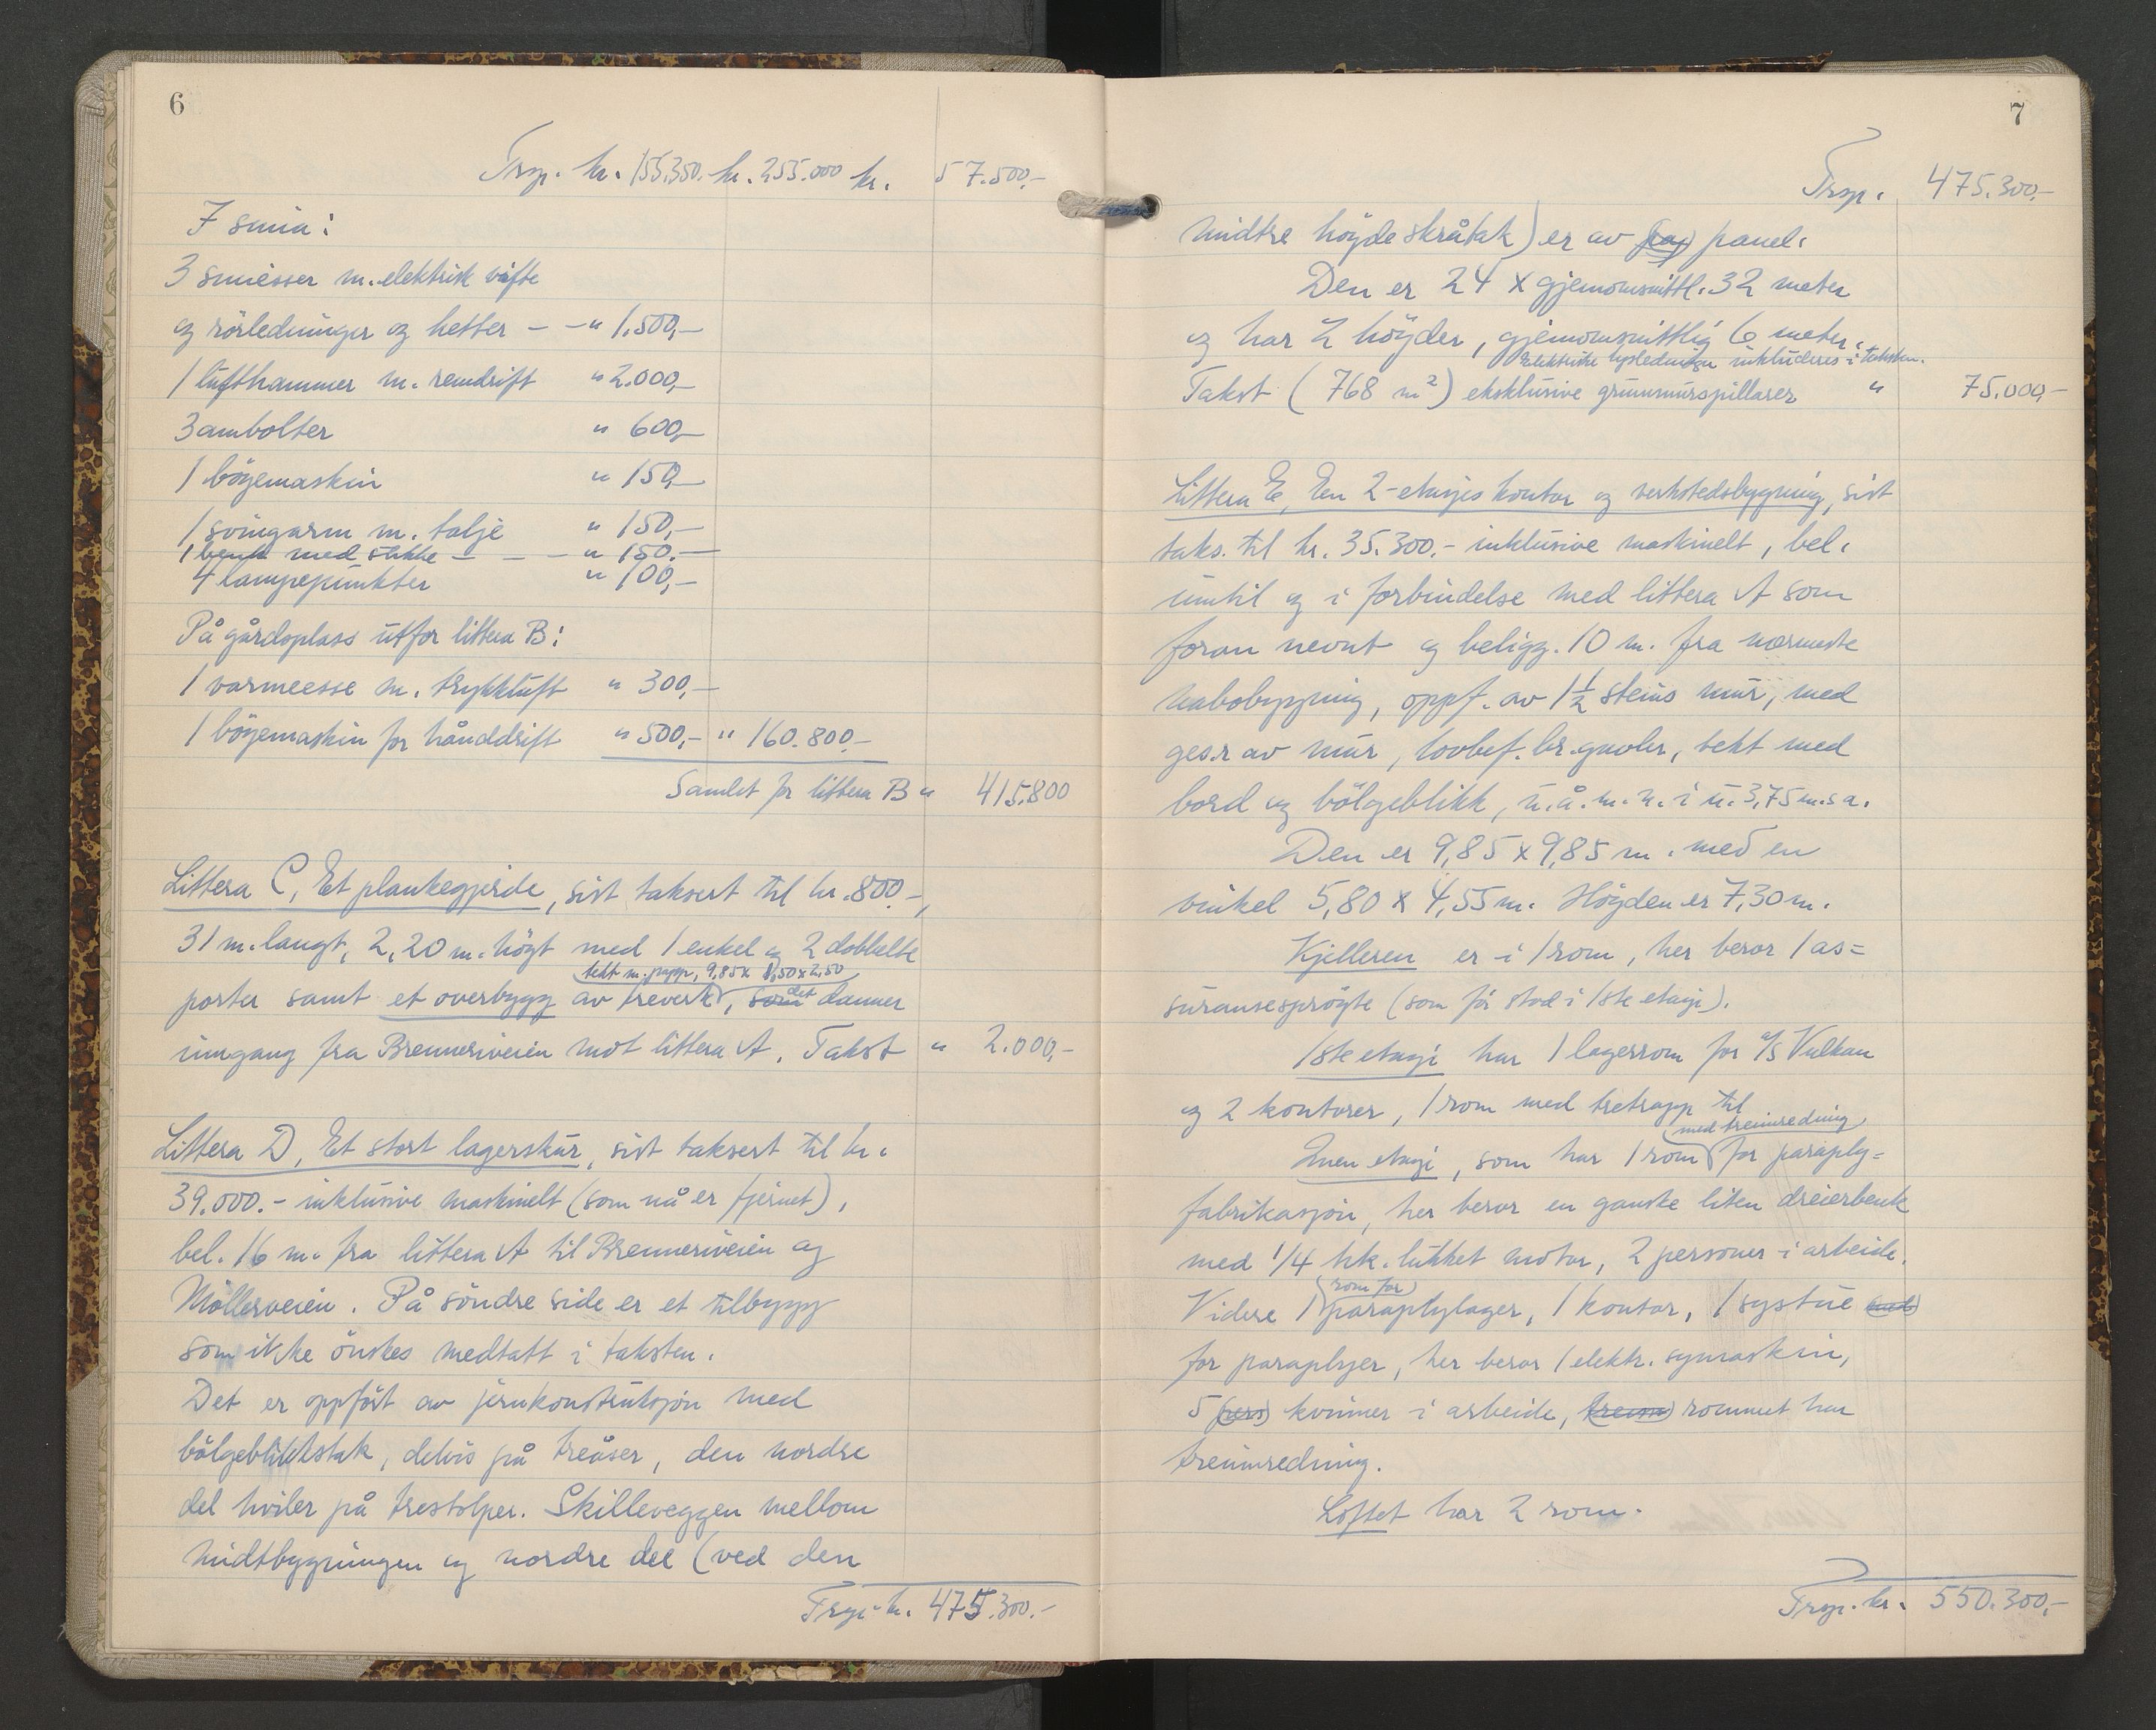 6
Trsp. kr. 155.350.- kr. 255.000 kr. 57.500.-
I smia:
3 smiesser m. elektrisk vifte
og rörledninger og hetter - - " 1.500,-
1 lufthammer m. remdrift " 2.000,-
3 ambolter " 600,-
1 böyemaskin " 150,-
1 svingarm m. talje " 150,-
1 benk med stikke - - - " 150.-
4 lampepunkter " 100,-
På gårdsplass utfor littera B:
1 varmeesse m. trykkluft " 300,-
1 böyemaskin for hånddrift " 500,- " 160.800.-
Samlet for littera B " 415.800
Littera C, Et plankegjerde, sist taksert til kr. 800.-,
31 m. langt, 2,20 m. högt med 1 enkel og 2 dobbelte
tekt m. papp, 9,85 x 1,50 x 2,50
porter samt et overbygg av treverk, som det danner
inngang fra Brenneriveien mot littera A. Takst " 2.000,-
Littera D, Et stort lagerskur, sist taksert til kr.
39.000.- inklusive maskinelt (som nå er fjernet),
bel. 16 m. fra littera A til Brenneriveien og
Möllerveien. På söndre side er et tilbygg
som ikke önskes medtatt i taksten.
Det er oppfört av jernkonstruksjon med
bölgeblikktak, delvis på treåser, den nordre
del hviler på trestolper. Skilleveggen mellom
midtbygningen og nordre del (ved den
Trsp. kr. 475.300.-
7
Trsp. 475.300.-
midtre höyde skråtak) er av panel.
Den er 24 x gjennomsnittl. 32 meter
og har 2 höyder, gjennomsnittlig 6 meter.
Elektriske lysledninger inkluderes i taksten.
Takst (768 m²) eksklusive grunnmurspillarer " 75.000,-
Littera E, En 2-etasjes kontor og verkstedsbygning, sist
taks. til kr. 35.300.- inklusive maskinelt, bel.
inntil og i forbindelse med littera A som
foran nevnt og beligg. 10 m. fra nærmeste
nabobygning, oppf. av 1 1/2 steins mur, med
ges.r av mur, lovbef. br.gavler, tekt med
bord og bölgeblikk, u.å.m.n. i u. 3,75 m. s a.
Den er 9,85 x 9,85 m. med en
vinkel 5,80 x 4,55 m. Höyden er 7,30 m.
Kjelleren er i 1 rom, her beror 1 as=
suransespröyte (som för stod i 1ste etasje).
1ste etasje har 1 lagerrom for A/S Vulkan
og 2 kontorer, 1 rom med tretrapp til
med treinnredning
2nen etasje, som har 1 rom for paraply=
fabrikasjon, her beror en ganske liten dreierbenk
med 1/4 hk. lukket motor, 2 personer i arbeide.
rom for
Videre 1 paraplylager, 1 kontor, 1 systue med
for paraplyer, her beror 1 elektr. symaskin,
5 pers kvinner i arbeide, treinn rommet har
treinnredning.
Loftet har 2 rom.
Trsp. kr. 550.300,-